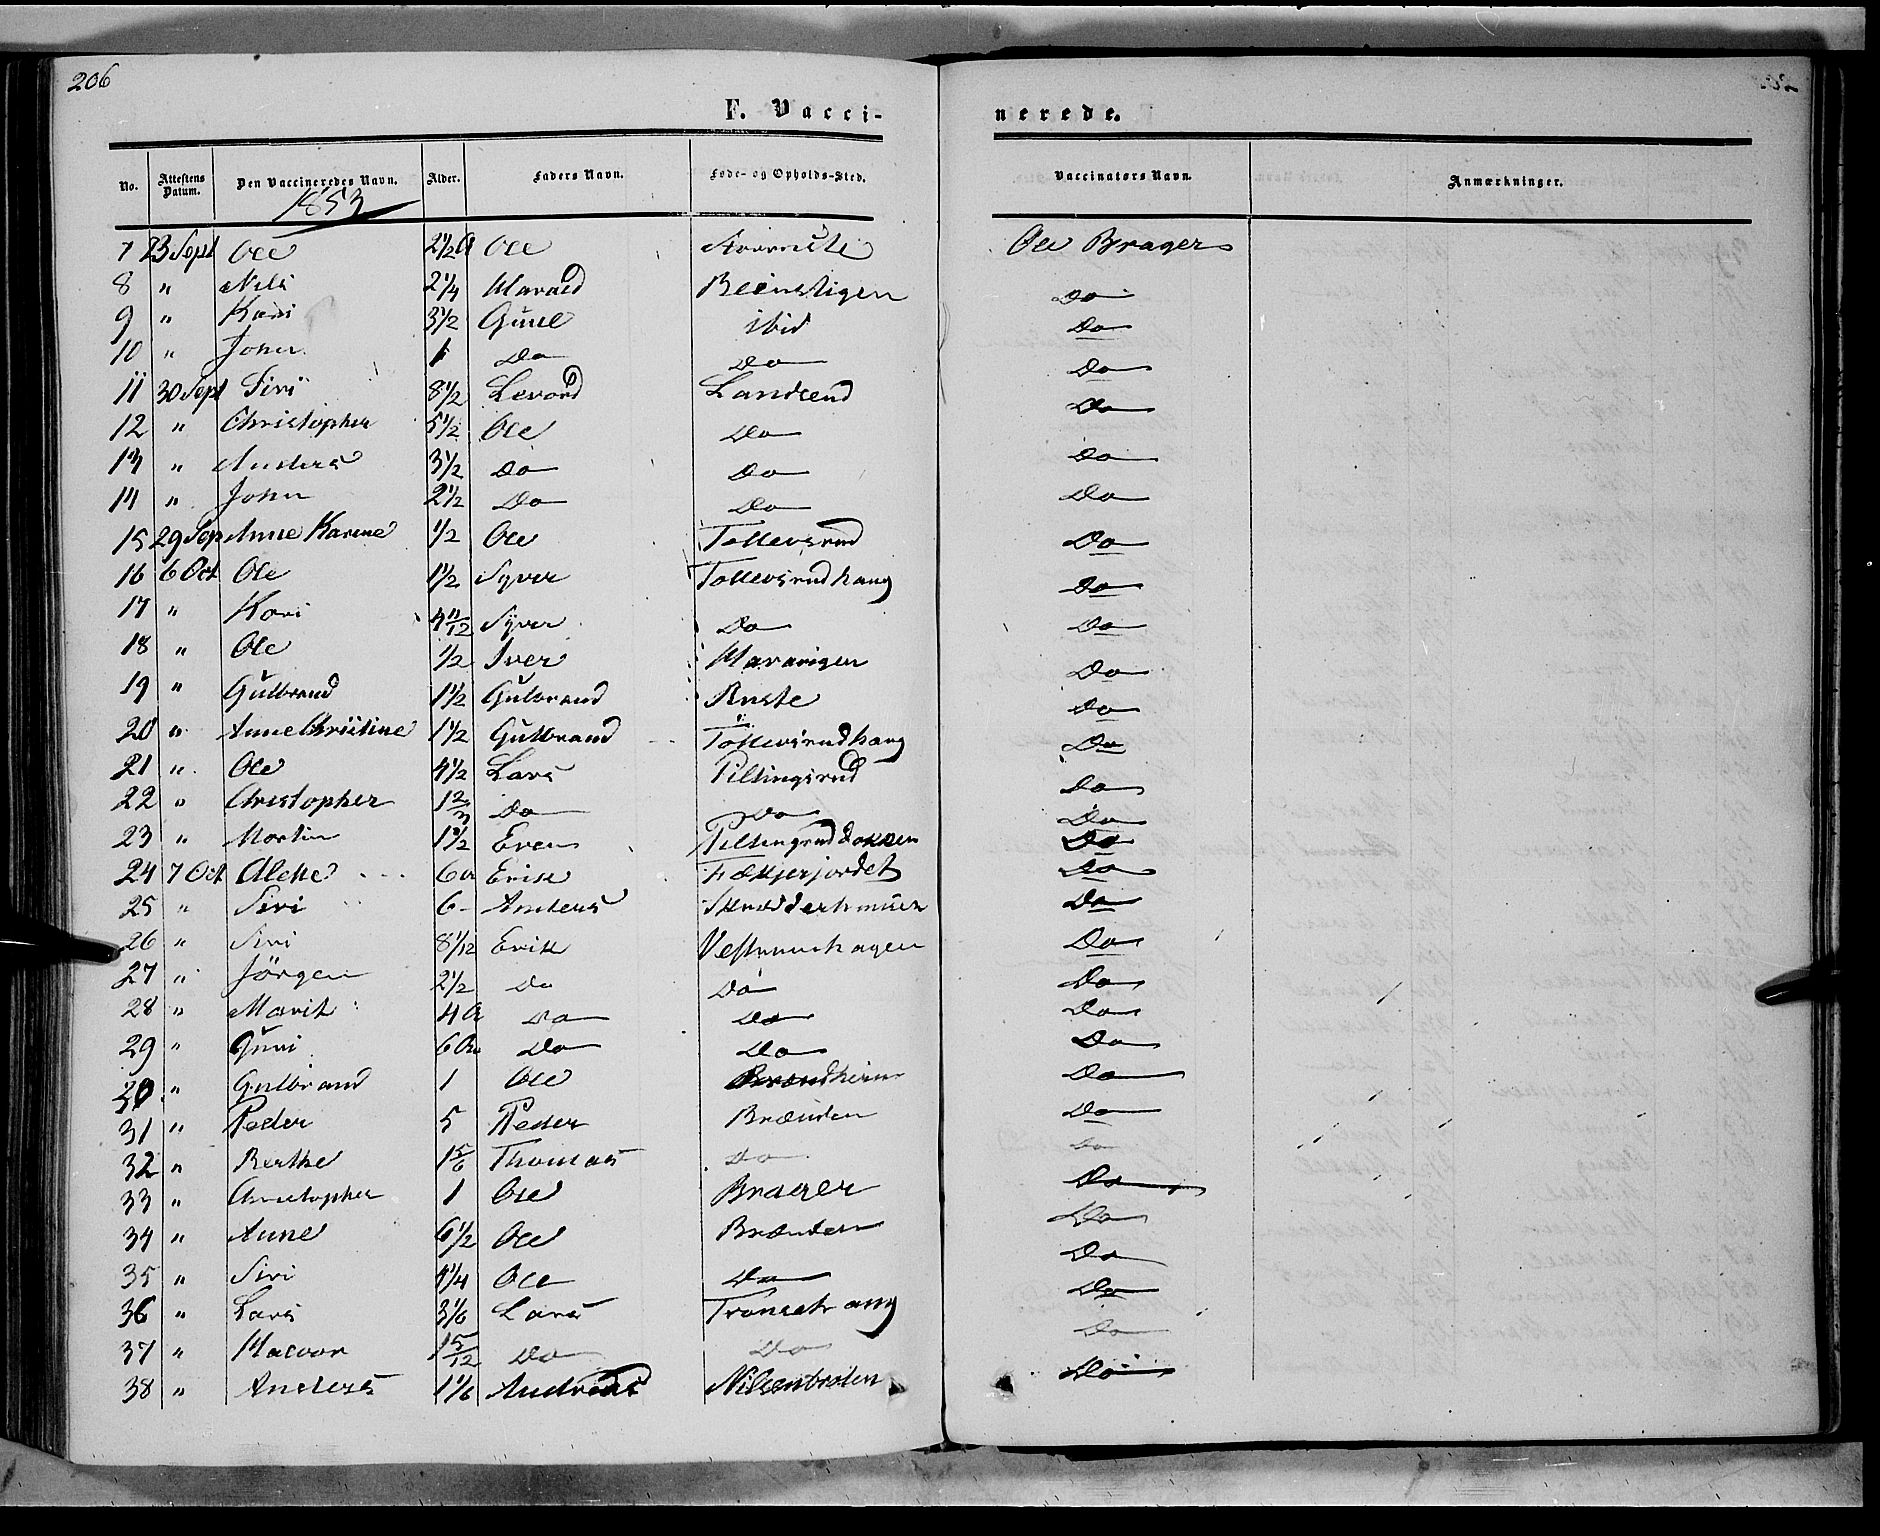 206
F. Vaccinerede.
No. Attestens Datum. Den Vaccineredes Navn. Alder. Faders Navn. Føde- og Opholds-Sted. Vaccinatørs Navn. Anmærkninger.
1853
7 23 Sept Ole 2 1/2 A Ole Ole Brager
8 " Nils 2 1/4 Harald Beinstigen Do
9 " Kari 3 1/2 Gunl ibid Do
10 " John 1 Do Do Do
11 30 Sept Siri 8 1/2 Levord Landsend Do
12 " Christopher 5 1/2 Ole Do Do
13 " Anders 3 1/2 Do Do Do
14 " John 2 1/2 Do Do Do
15 29 Sep Anne Karine 1/2 Ole Tollevsrud Do
16 6 Oct Ole 1 1/2 Syver Tollevsrudhaug Do
17 " Kari 4 11/12 Syver Do Do
18 " Ole 1/2 Iver Do
19 " Gulbrand 1 1/2 Gulbrand Ruste Do
20 " Anne Christine 1 1/2 Gulbrand Tollevsrudhaug Do
21 " Ole 4 1/2 Lars Piltingsrud Do
22 " Christopher 1 2/3 Do Do Do
23 " Martin 1 1/2 Even Piltingsruddokken Do
24 7 Oct Aleke 6 Erik Fækjerjordet Do
25 " Siri 6 Anders Do
26 " Siri 8 1/12 Erik Vestrumhagen Do
27 " Jörgen 2 1/2 Do Do Do
28 " Marit 4 Do Do Do
29 " Guri 6 Do Do Do
30 " Gulbrand 1 Ole Do
31 " Peder 5 Peder Brænden Do
32 " Berthe 1 5/6 Thomas Do Do
33 " Christopher 1 Ole Brager Do
34 " Anne 6 1/2 Ole Brænden Do
35 " Siri 4 1/4 Ole Do Do
36 " Lars 3 1/6 Lars Tronsethaug Do
37 " Halvor 1 5/12 Do Do Do
38 " Anders 1 1/6 Andreas Nilsenbroten Do